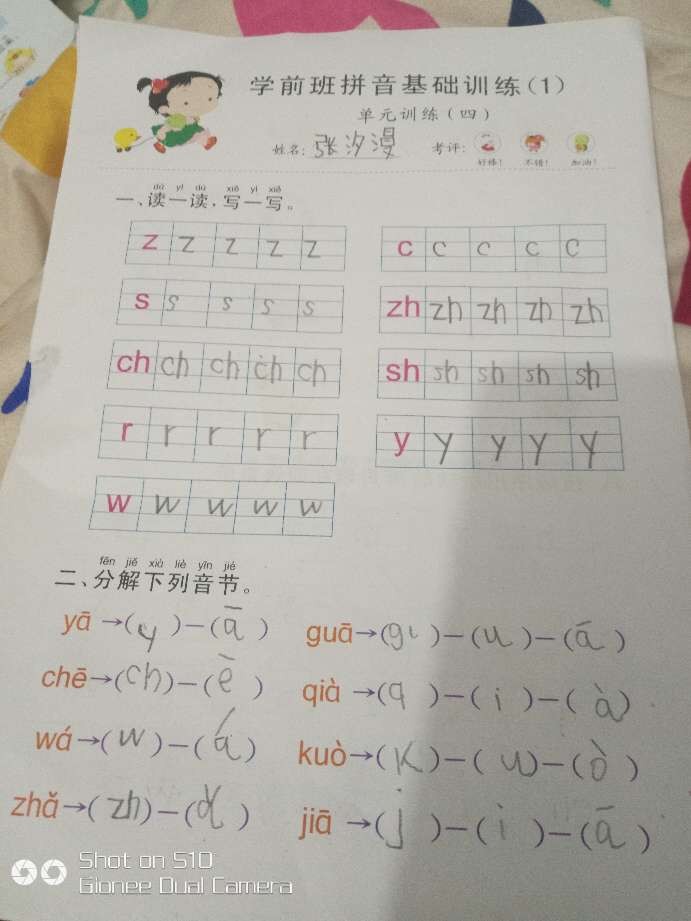 学前班拼音基础训练(1)
单元训练(四)
姓名: 张汐漫 考评: 好棒! 不错! 加油!
dú yì dú xiě yì xiě
一、读一读,写一写。
z z z z z c c c c c
s s s s s zh zh zh zh zh
ch ch ch ch ch sh sh sh sh sh
r r r r r y y y y y
w w w w w
fēn jiě xià liè yīn jié
二、分解下列音节。
yā→(y)–(ā) guā→(g)–(u)–(ā)
chē→(ch)–(ē) qià→(q)–(i)–(à)
wá→(w)–(á) kuò→(k)–(u)–(ò)
zhǎ→(zh)–(ǎ) jiā→(j)–(i)–(ā)
Shot on S10
Gionee Dual Camera